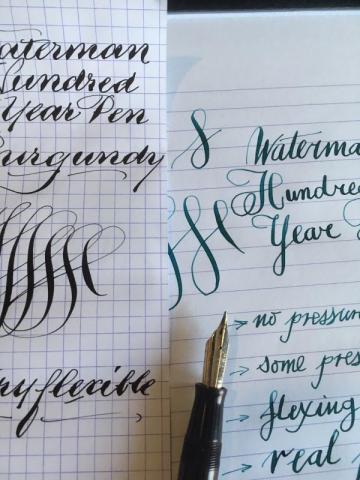 aterman
Hundred
Year Pen
Burgundy
ry flexible
Waterma
Hundred
Year
no pressur
some pres
flexing
real